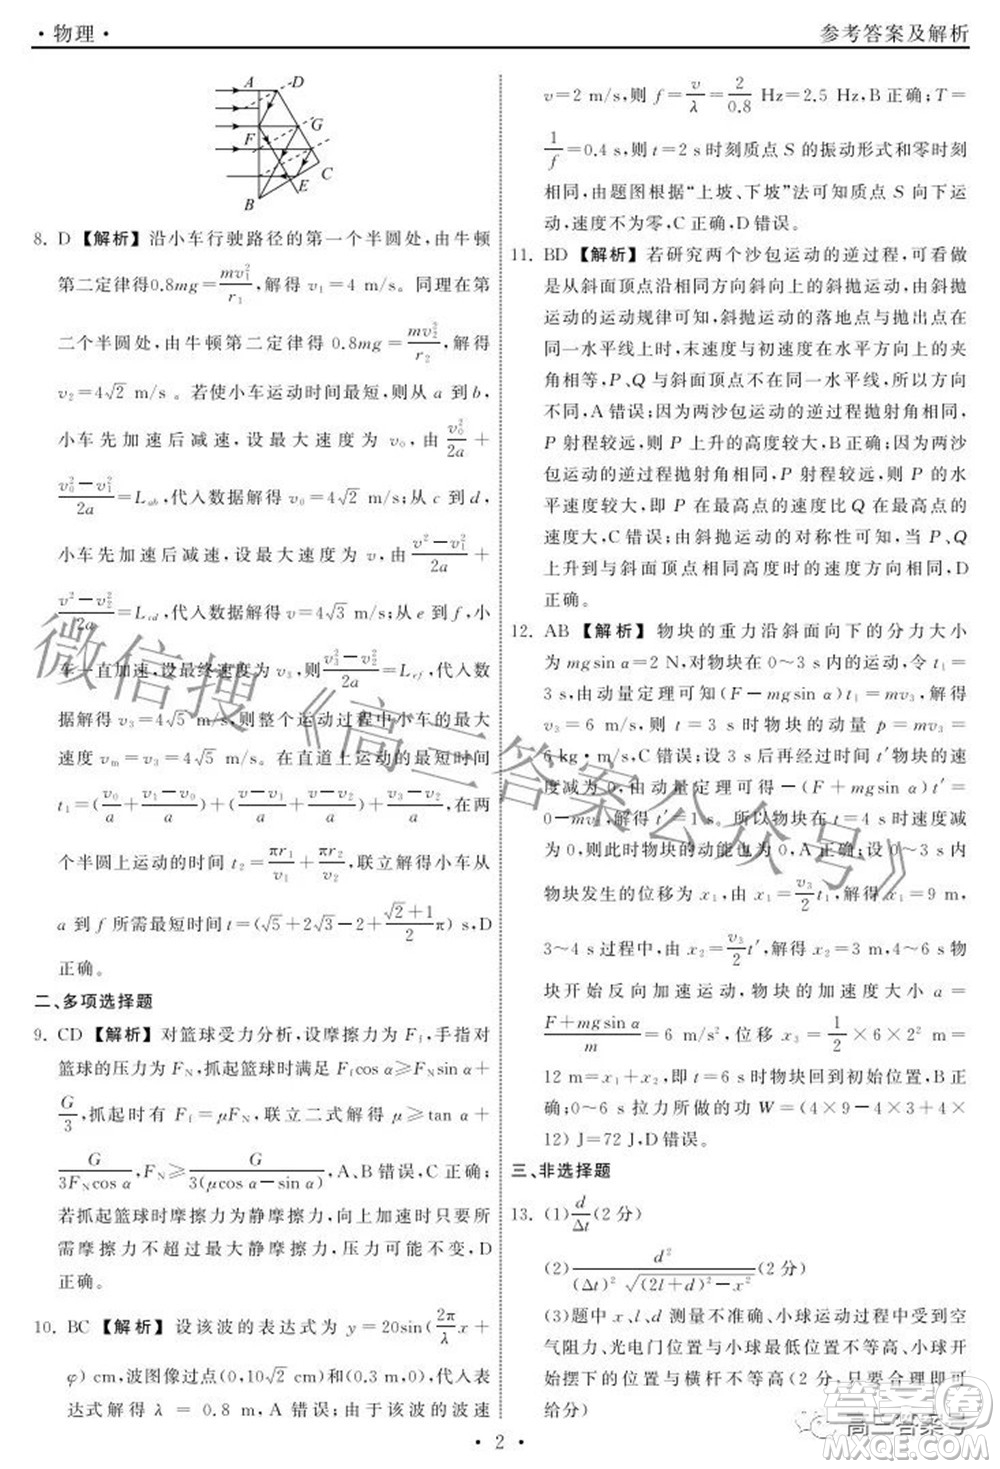 · 物理 ·
参考答案及解析
A D
F G
C
E
B
8. D 【解析】沿小车行驶路径的第一个半圆处,由牛顿
第二定律得0.8mg=mv₁²/r₁,解得 v₁=4 m/s。同理在第
二个半圆处,由牛顿第二定律得 0.8mg=mv₂²/r₂,解得
v₂=4√2 m/s 。若使小车运动时间最短,则从 a 到 b,
小车先加速后减速,设最大速度为 v₀,由 v₀²/2a +
(v₀²-v₁²)/2a=L_ab,代入数据解得 v₀=4√2 m/s;从 c 到 d,
小车先加速后减速,设最大速度为 v,由 (v²-v₁²)/2a +
(v²-v₂²)/2a=L_cd,代入数据解得 v=4√3 m/s;从 e 到 f,小
车一直加速,设最终速度为 v₃,则(v₃²-v₂²)/2a=L_ef,代入数
据解得 v₃=4√5 m/s,则整个过程中小车的最大速度
v_m=v₃=4√5 m/s。在直道上运动的时间
t₁=(v₀/a+(v₀-v₁)/a)+((v-v₁)/a+(v-v₂)/a)+(v₃-v₂)/a,在两
个半圆上运动的时间 t₂=πr₁/v₁+πr₂/v₂,联立解得小车从
a 到 f 所需最短时间 t=(√5+2√3-2+(√2+1)/2π) s,D
正确。
二、多项选择题
9. CD 【解析】对篮球受力分析,设摩擦力为 F_f,手指对
篮球的压力为 F_N,抓起篮球时满足 F_fcos α≥F_Nsin α+
G/3,抓起时有 F_f=μF_N,联立二式解得 μ≥tan α+
G/(3F_Ncos α),F_N≥G/(3(μcos α-sin α)),A、B 错误,C 正确;
若抓起篮球时摩擦力为静摩擦力,向上加速时只要所
需摩擦力不超过最大静摩擦力,压力可能不变,D
正确。
10. BC 【解析】设该波的表达式为 y=20sin(2π/λ x+
φ) cm,波图像过点(0,10√2 cm)和(0.3 m,0),代入表
达式解得 λ = 0.8 m,A 错误;由于该波的波速
v=2 m/s,则 f=v/λ=2/0.8 Hz=2.5 Hz,B 正确;T=
1/f=0.4 s,则 t=2 s时刻质点 S 的振动形式和零时刻
相同,由题图根据“上坡、下坡”法可知质点 S 向下运
动,速度不为零,C 正确,D 错误。
11. BD 【解析】若研究两个沙包运动的逆过程,可看做
是从斜面顶点沿相同方向斜向上的斜抛运动,由斜抛
运动的运动规律可知,斜抛运动的落地点与抛出点在
同一水平线上时,末速度与初速度在水平方向上的夹
角相同,P、Q 与斜面顶点不在同一水平线,所以方向
不同,A 错误;因为两沙包运动的逆过程抛射角相同,
P 射程较远,则 P 上升的高度较大,B 正确;因为两沙
包运动的逆过程抛射角相同,P 射程较远,P 的水
平速度较大,即 P 在最高点的速度比 Q 在最高点的
速度大,C 错误;由斜抛运动的对称性可知,当 P、Q
上升到与斜面顶点相同高度时的速度方向相同,D
正确。
12. AB 【解析】物块的重力沿斜面向下的分力大小
为 mgsin α=2 N,对物块在 0～3 s的运动,令
t₁=3 s,由动量定理可知(F-mgsin α)t₁=mv₃,解得
v₃=6 m/s,则 t=3 s 时物块的动量 p=mv₃=
6 kg·m/s,C 错误;设 3 s后再经过时间 t′物块的速
度减为 0,由动量定理可得 -(F+mgsin α)t′=
0-mv₃,解得 t′=1 s。所以物块在 t=4 s时速度减
为 0,则此时物块的动能也为 0,A 正确;设 0～3 s内
物块发生的位移为 x₁,由 x₁=v₃/2 t₁,解得 x₁=9 m,
3～4 s 过程中,由 x₂=v₃/2 t′,解得 x₂=3 m,4～6 s物
块开始反向加速运动,物块的加速度大小 a=
(F+mgsin α)/m=6 m/s²,位移 x₃=1/2×6×2² m=
12 m=x₁+x₂,即 t=6 s时物块回到初始位置,B 正
确;0～6 s 拉力所做的功 W=(4×9-4×3+4×
12) J=72 J,D 错误。
三、非选择题
13. (1)d/Δt(2 分)
(2)d²/((Δt)²√((2l+d)²-x²))(2 分)
(3)题中 x、l、d 测量不准确、小球运动过程中受到空
气阻力、光电门位置与小球最低点位置不等高、小球
最低点位置与横杆不等高(2 分,只要合理即可
给分)
· 2 ·
微信搜《高三答案公众号》
高三答案号
答案圈
MXQE.COM